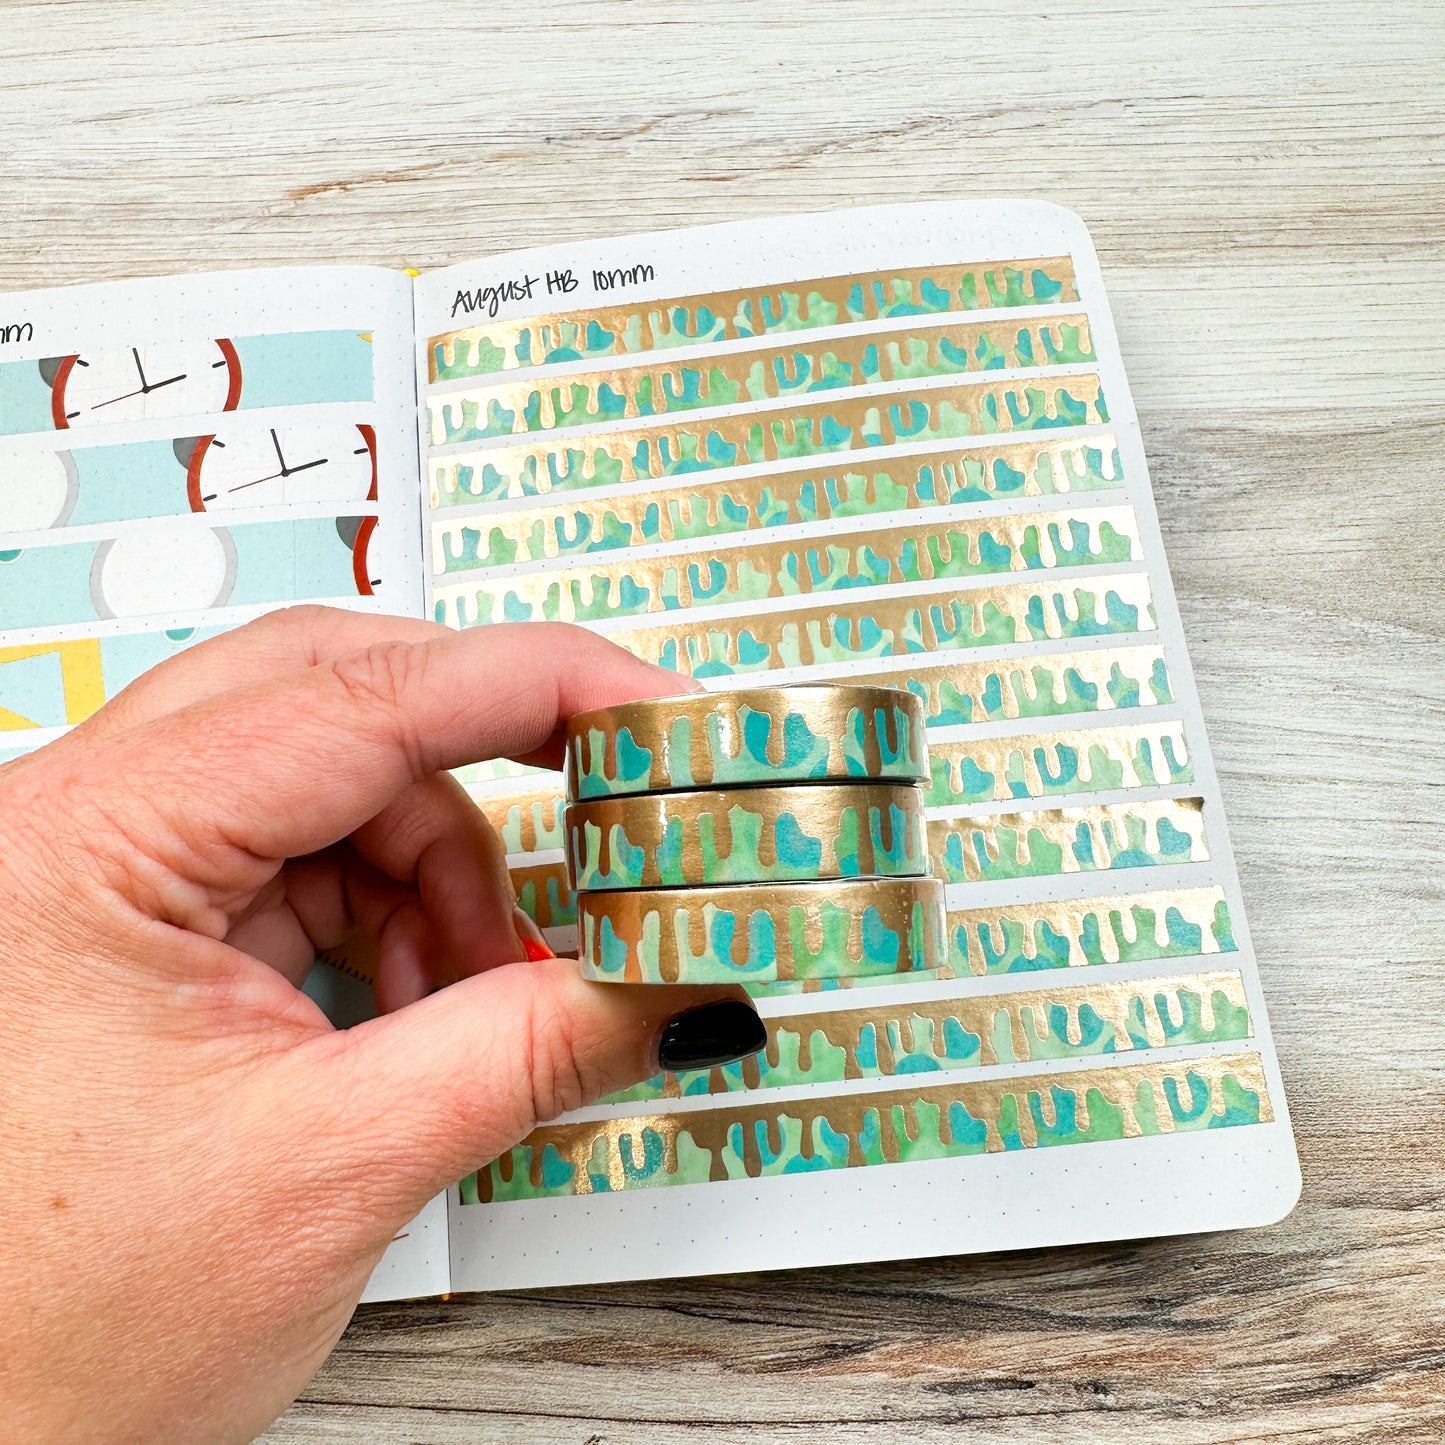 mm
August HB 10mm